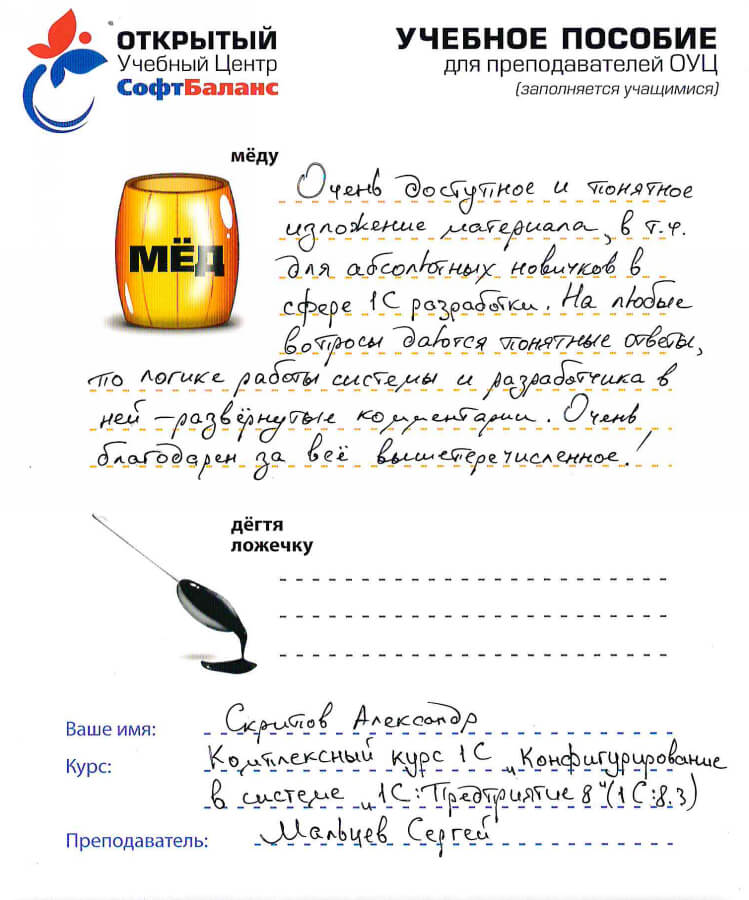 ОТКРЫТЫЙ
Учебный Центр
СофтБаланс
УЧЕБНОЕ ПОСОБИЕ
для преподавателей ОУЦ
(заполняется учащимися)
мёду
МЁД
Очень доступное и понятное
изложение материала, в т.ч.
для абсолютных новичков в
сфере 1С разработки. На любые
вопросы даются понятные ответы,
по логике работы системы и разработчика в
ней – развёрнутые комментарии. Очень
благодарен за всё вышеперечисленное!
дёгтя
ложечку
Ваше имя: Скрипов Александр
Курс: Комплексный курс 1С „Конфигурирование
в системе „1С:Предприятие 8" (1С:8.3)
Преподаватель: Мальцев Сергей